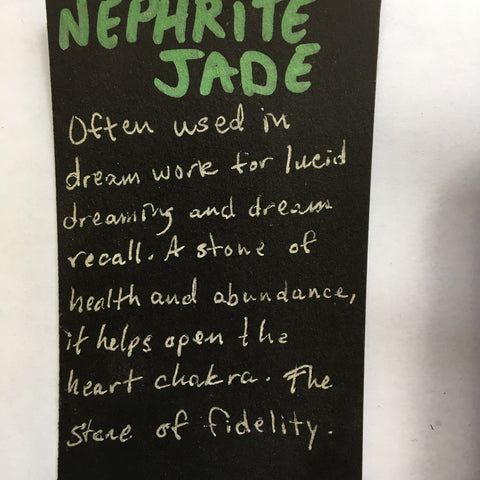 NEPHRITE
JADE
Often used in
dream work for lucid
dreaming and dream
recall. A stone of
health and abundance,
it helps open the
heart chakra. The
stone of fidelity.